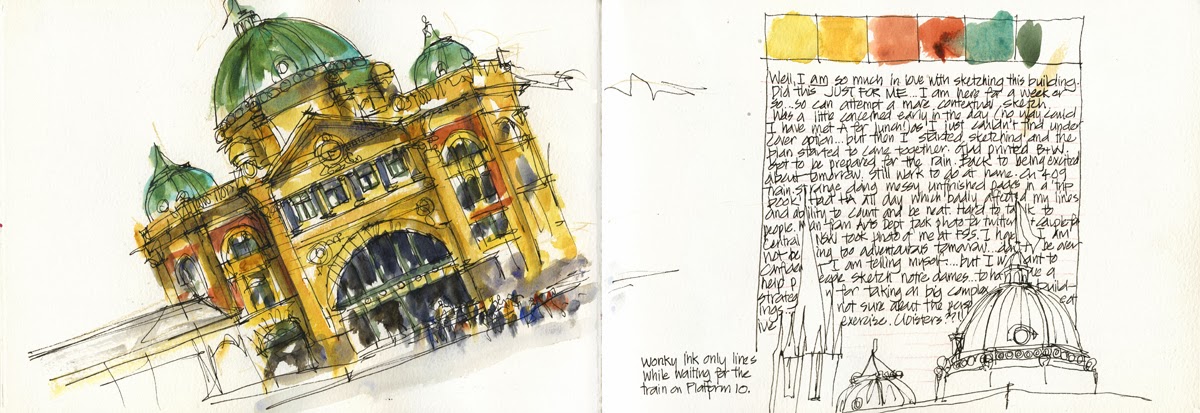 Well, I am so much in love with sketching this building.
Did this JUST FOR ME... I am here for a week or
so... so can attempt a more contextual sketch.
Was a little concerned early in the day (no way could
I have met A for lunch!) as I just couldn't find under
cover option... but then I started sketching and the
plan started to come together. and printed B+W
got to be prepared for the rain. Back to being excited
about tomorrow. Still work to do at home. On 4.09
train. Strange doing messy unfinished pages in a trip
book! that all day which badly affected my lines
and ability to count and be neat. Hard to talk to
people. from Arts Dept took photo to Twitter
Central NSW took photo of me at FSS. I I am
not being too adventurous tomorrow... don't be over
I am telling myself... but I want to
help sketch notre dames. to have a
strateg for taking on big complex build-
ings... not sure about the
live exercise. Cloisters??!
Wonky Ink only lines
while waiting for the
train on Platform 10.